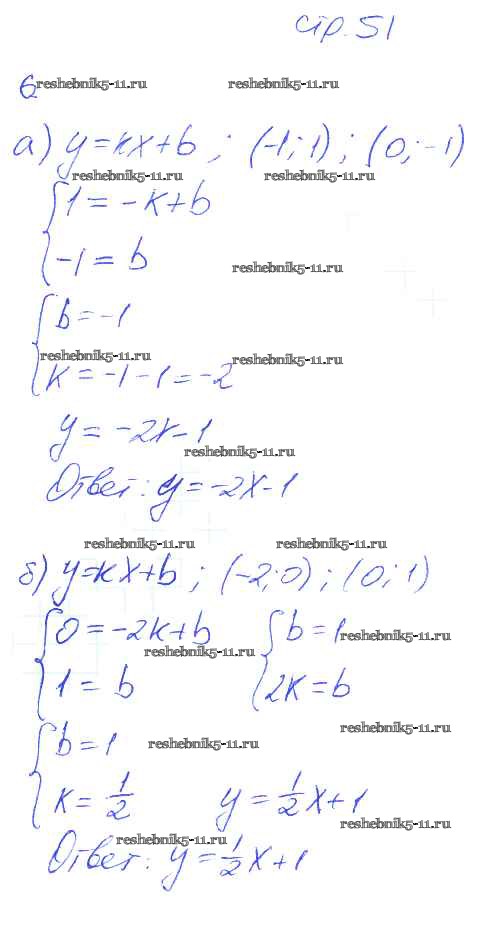 стр. 51
6
reshebnik5-11.ru reshebnik5-11.ru
а) y=kx+b ; (-1;1) ; (0;-1)
reshebnik5-11.ru reshebnik5-11.ru
{ 1 = -k+b
-1 = b
reshebnik5-11.ru
{ b = -1
reshebnik5-11.ru reshebnik5-11.ru
k = -1-1 = -2
y = -2x-1
reshebnik5-11.ru
Ответ: y = -2x-1
reshebnik5-11.ru reshebnik5-11.ru
б) y=kx+b ; (-2;0) ; (0;1)
{ 0 = -2k+b { b = 1
reshebnik5-11.ru
reshebnik5-11.ru
1 = b 2k = b
reshebnik5-11.ru
{ b = 1
reshebnik5-11.ru
k = 1/2 y = 1/2 x+1
reshebnik5-11.ru
reshebnik5-11.ru
Ответ: y = 1/2 x+1